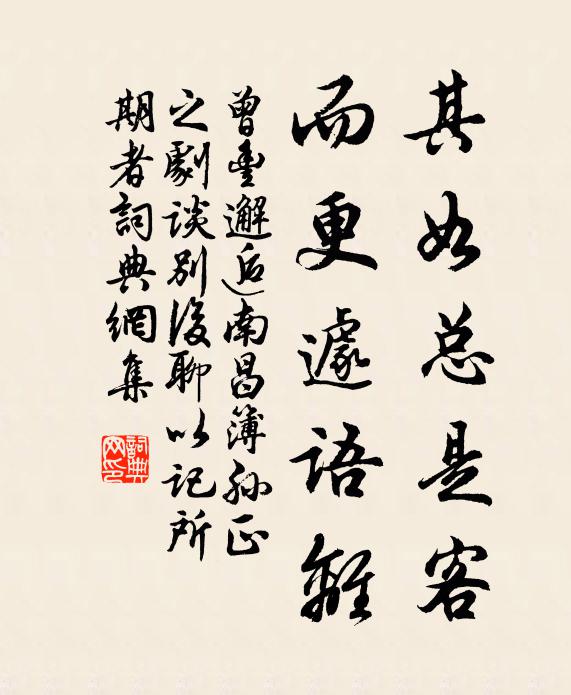 其如总是客
而更遽語離
曾豐邂逅南昌簿孙正
之劇谈别後聊以記所
期者詞典網集
詞典网印